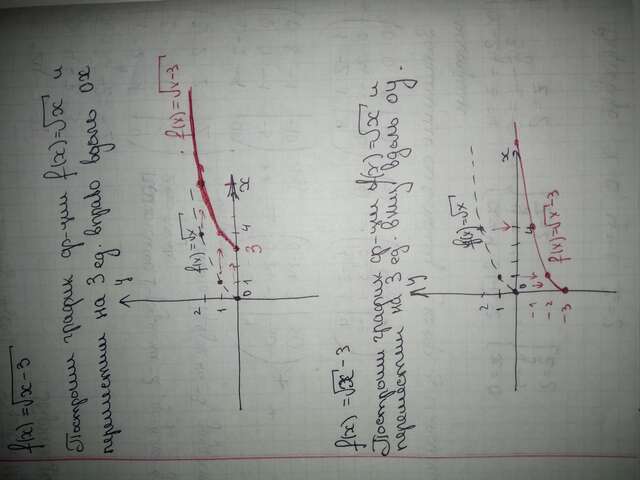 f(x) = √x-3
Построим график ф-ции f(x)=√x и
переместим на 3 ед. вправо вдоль OX
y
f(x)=√x
f(x)=√x-3
2
1
0 1 3 4 x
f(x) = √x - 3
Построим график ф-ции f(x)=√x и
переместим на 3 ед. вниз вдоль OY.
y
f(x)=√x
2
1
x
0 4
-1
-2
f(x)=√x-3
-3